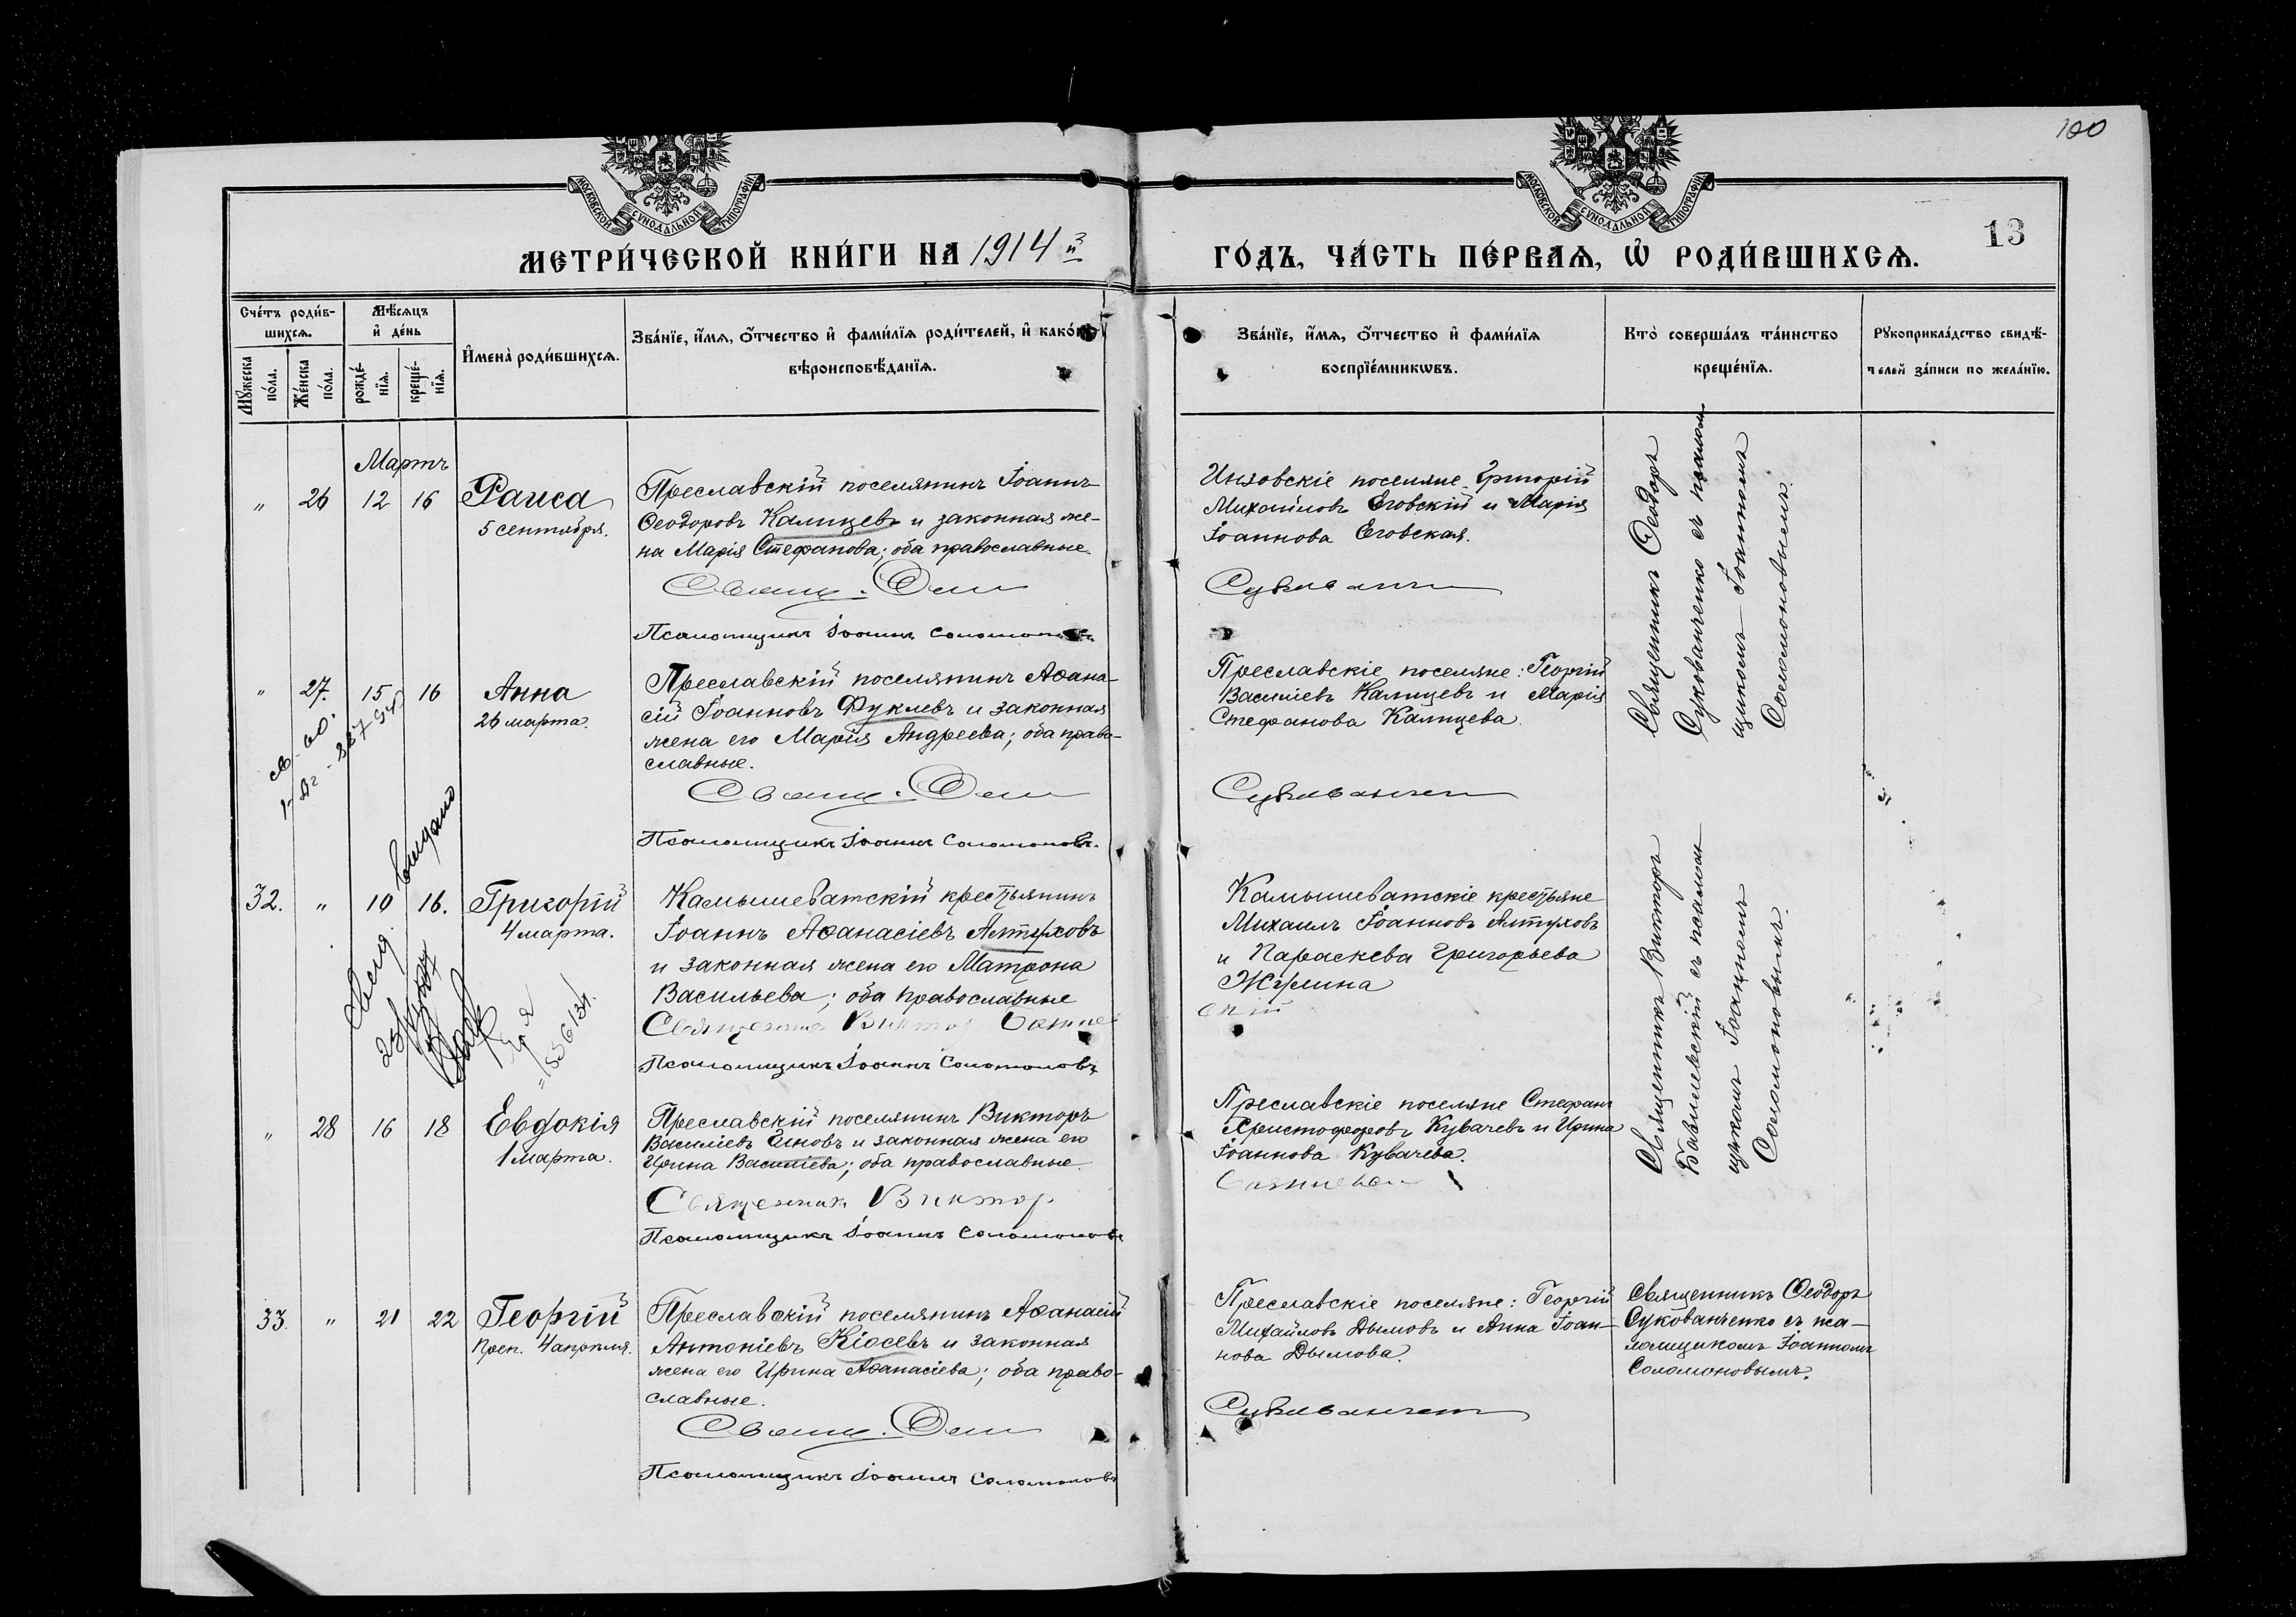 100
МОСКОВСКОЙ СУНОДАЛЬНОЙ ТИПОГРАФІИ
МОСКОВСКОЙ СУНОДАЛЬНОЙ ТИПОГРАФІИ
13
МЕТРИ́ЧЕСКОЙ КНИ́ГИ НА 1914 й
ГО́ДЪ, ЧА́СТЬ ПЕ́РВАѦ, Ѡ҆ РОДИ́ВШИХСѦ.
Сче́тъ роди́в-
шихсѧ.
Мꙋ́жеска по́ла.
Же́нска по́ла.
Мѣ́сѧцъ
и҆ де́нь
рожде́-
нїѧ.
креще́-
нїѧ.
И҆мена̀ роди́вшихсѧ.
Зва́нїе, и҆́мѧ, ѻ҆́тчество и҆ фами́лїѧ роди́телей, и҆ како́гѡ
вѣроисповѣ́данїѧ.
Зва́нїе, и҆́мѧ, ѻ҆́тчество и҆ фами́лїѧ
воспрїе́мникѡвъ.
Кто̀ соверша́лъ та́инство
креще́нїѧ.
Рꙋкоприкла́дство свидѣ́-
телей за́писи по жела́нїю.
Мартъ
" 26 12 16 Раиса
5 сентября.
Преславскій поселянинъ Іоаннъ
Ѳеодоровъ Калицевъ и законная же-
на Марія Стефанова; оба православные.
Псаломщикъ Іоаннъ Соломоновъ
Инзовскіе поселяне Григорій
Михайловъ Еговскій и Марія
Іоаннова Еговская.
Священникъ Ѳеодоръ
Сукованченко съ псалом
щикомъ Іоанномъ
Соломоновымъ.
" 27. 15 16 Анна
26 марта.
Преславскій поселянинъ Аѳана-
сій Іоанновъ Фуклевъ и законная
жена его Марія Андреева; оба право-
славные.
Псаломщикъ Іоаннъ Соломоновъ.
Преславскіе поселяне: Георгій
Василіевъ Калицевъ и Марія
Стефанова Калицева.
32. " 10 16. Григорій
4 марта.
выдано
Камышеватскій крестьянинъ
Іоаннъ Аѳанасіевъ Алтуховъ
и законная жена его Матрона
Васильева; оба православные
Священникъ Виктор
Псаломщикъ Іоаннъ Соломоновъ
Камышеватскіе крестьяне
Михаилъ Іоанновъ Алтуховъ
и Параскева Григорьева
скій
Священникъ Викторъ
съ псалом
щикомъ Іоанномъ
Соломоновымъ.
" 28 16 18 Евдокія
1 марта.
Преславскій поселянинъ Викторъ
Василіевъ и законная жена его
Ирина Василіева; оба православные.
Священник Виктор
Псаломщикъ Іоаннъ Соломоновъ
Преславскіе поселяне Стефанъ
Христофоровъ Кувачевъ и Ирина
Іоаннова Кувачева.
33. " 21 22 Георгій
Преп. 4 апрѣля.
Преславскій поселянинъ Аѳанасій
Антоніевъ Кіосевъ и законная
жена его Ирина Аѳанасіева; оба право-
славные.
Псаломщикъ Іоаннъ Соломоновъ
Преславскіе поселяне: Георгій
Михайловъ Дымовъ и Анна Іоан-
нова Дымова.
Священникъ Ѳеодоръ
Сукованченко съ пса-
ломщикомъ Іоанномъ
Соломоновымъ.